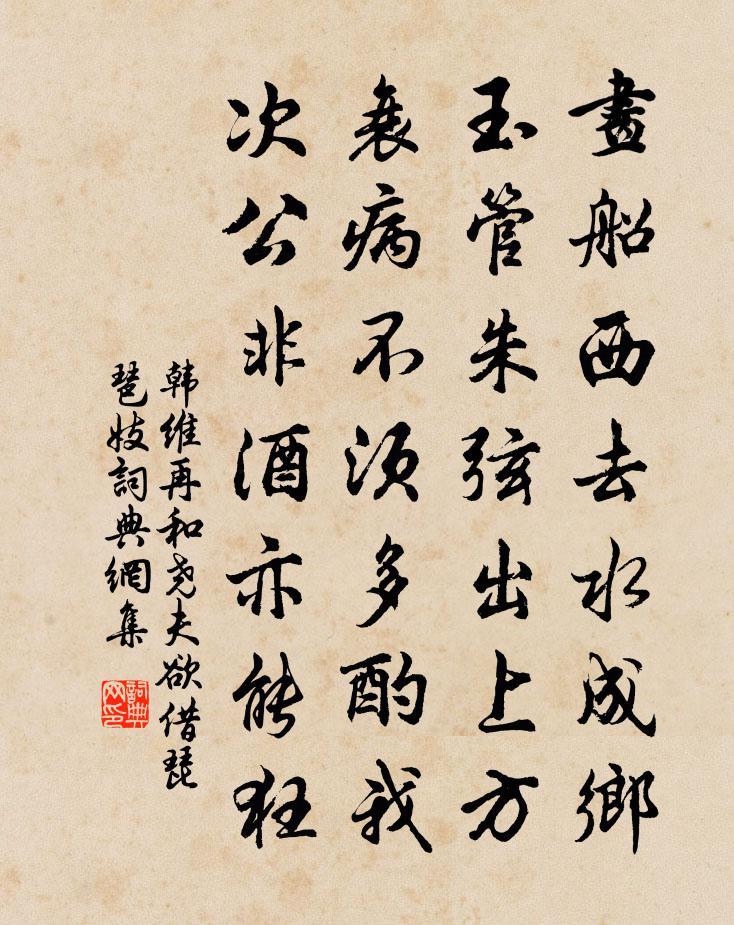 畫船西去水成鄉
玉管朱弦出上方
衰病不須多酌我
次公非酒亦能狂
韩维再和尧夫欲借琵
琶妓詞典網集
詞典
网印